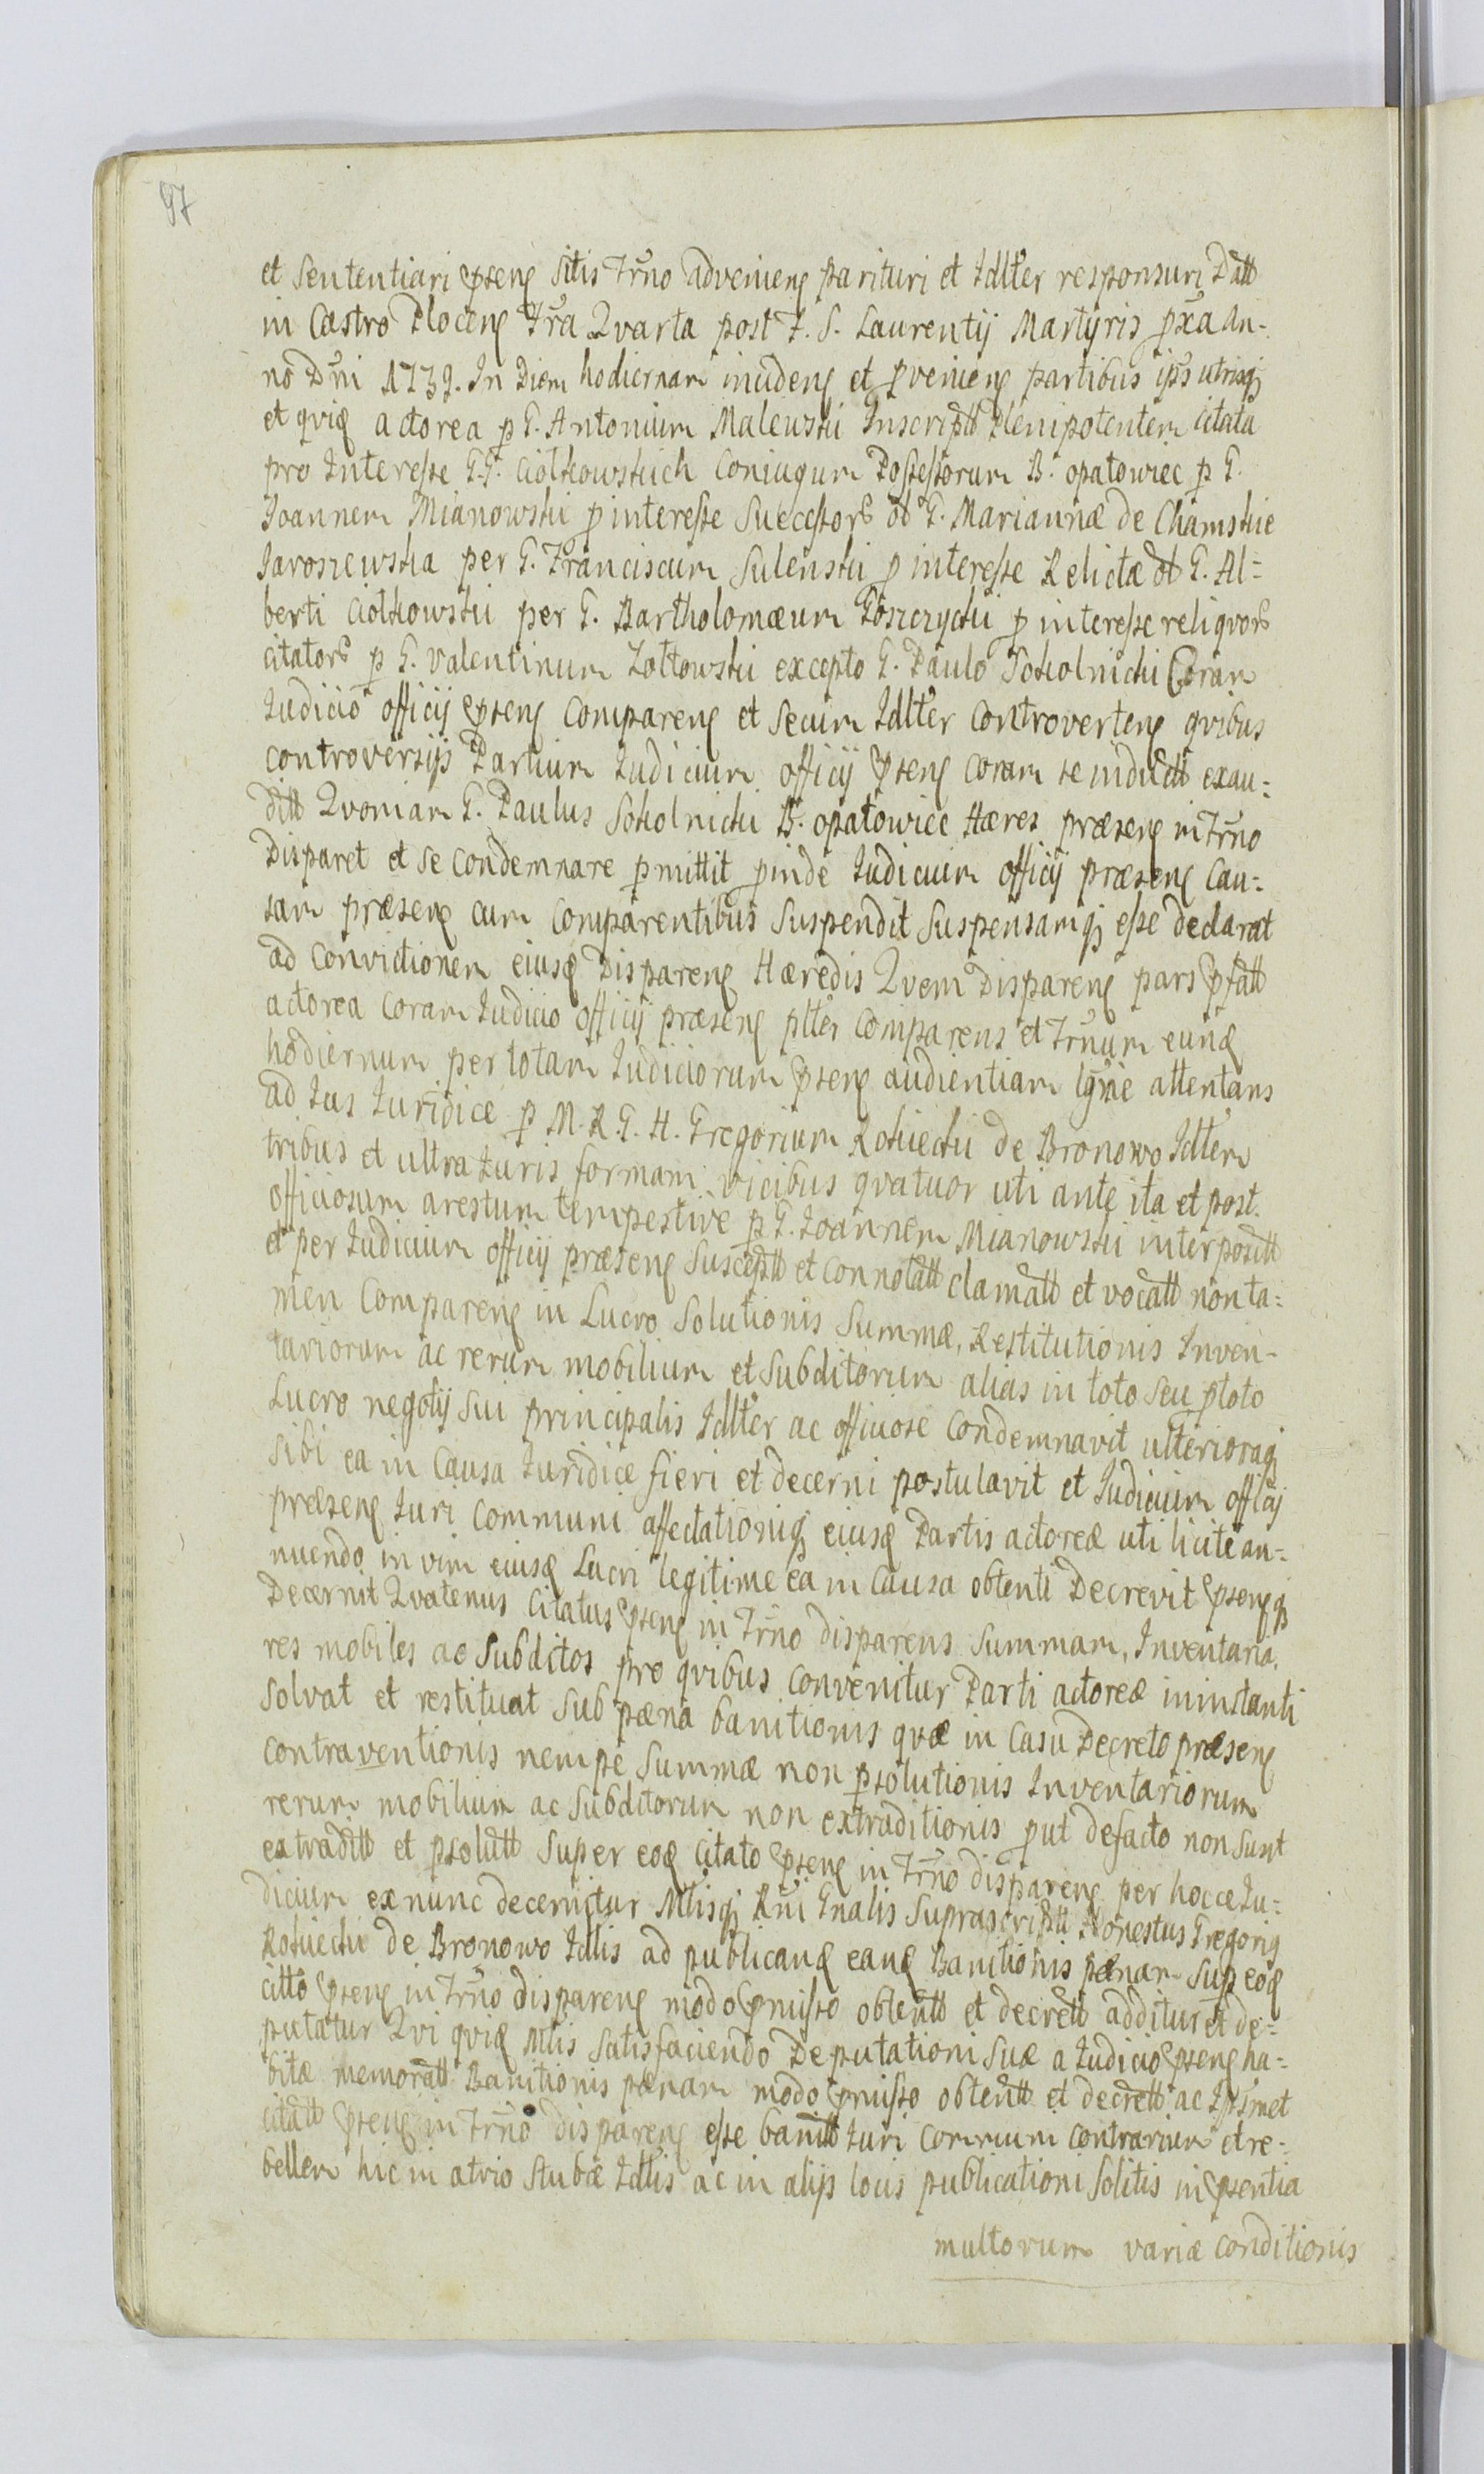 97
et Sententiari pseng sitis Trno advenieng parituri et Idlter responsuri Datt
in Castro Ploceng Fra Qvarta post F. S. Laurentij Martyris pxa An-
no Dni 1739. In Diem hodiernam incideng et pvenieng partibus ips utrisqz
et qvidem actorea p G. Antonium Malewski Inscriptt Plenipotentem Citata
pro Interesse G.G. Ciołkowskich Coniugum Possessorum B. Opatowiec p G.
Joannem Mianowski p interesse Successor ol G. Mariannæ de Chamskie
Jaroszewska per G. Franciscum Sulenski p interesse Relictæ ol G. Al=
berti Ciołkowski per G. Bartholomæum Goszczycki p interesse reliqvor
citator p G. Valentinum Zołtowski excepto G. Paulo Sokolnicki Coram
Judicio officij pseng Compareng et Secum Idlter Controverteng qvibus
Controversijs Partium Judicium officij pseng Coram se inductt exau=
ditt Qvoniam G. Paulus Sokolnicki B. Opatowiec Hæres præseng in Trno
Disparet et se Condemnare pmittit pinde Judicium officij præseng Cau=
sam præseng cum Comparentibus Suspendit Suspensamqz esse declarat
ad Convictionem eiusd Dispareng Hæredis Qvem Dispareng pars pfatt
actorea Coram Judicio officij præseng plter Comparens et Trnum eund
hodiernum per totam Judiciorum pseng audientiam lgme attentans
ad Jus Juridice p M. R. G. H. Gregorium Rokicki de Bronowo Idlem
tribus et ultra Juris formam vicibus qvatuor uti ante ita et post.
officiosum arestum tempestive p G. Joannem Mianowski interpositt
et per Judicium officij præseng Susceptt et Connotatt clamatt et vocatt non ta=
men Compareng in Lucro Solutionis Summæ, Restitutionis Inven-
tariorum ac rerum mobilium et Subditorum alias in toto Seu ptoto
Lucro negotij Sui principalis Idlter ac officiose Condemnavit ulterioraqz
sibi ea in Causa Juridice fieri et decerni postulavit et Judicium officij
præseng Juri Communi affectationiqz eiusd Partis actoreæ uti licite an=
nuendo in vim eiusd Lucri legitime ea in Causa obtenti Decrevit psengqz
Decernit Qvatenus Citatus pseng in Trno disparens Summam, Inventaria,
res mobiles ac Subditos pro qvibus convenitur Parti actoreæ in instanti
Solvat et restituat Sub pæna banitionis qvæ in Casu Decreto præseng
contraventionis nempe Summæ non psolutionis Inventariorum
rerum mobilium ac Subditorum non extraditionis put defacto non sunt
extraditt et psolutt Super eod Citato pseng in Trno dispareng per hocce Ju=
dicium ex nunc decernitur Mtisqz Rni Gnalis Suprascriptt Honestus Gregorig
Rokicki de Bronowo Idlis ad publicand eand Banitionis pænam Sup eod
citto pseng in Trno dispareng modo pmisso obtentt et decrett additur et de=
putatur Qvi qvid Mtis Satisfaciendo Deputationi Suæ a Judicio pseng ha=
bitæ memoratt Banitionis pænam modo pmisso obtentt et decrett ac Ipsmet
citatt pseng in Trno dispareng esse banitt Juri Commum Contrarium et re=
bellem hic in atrio Stubæ Idlis ac in alijs locis publicationi Solitis in psentia
multorum variæ conditionis